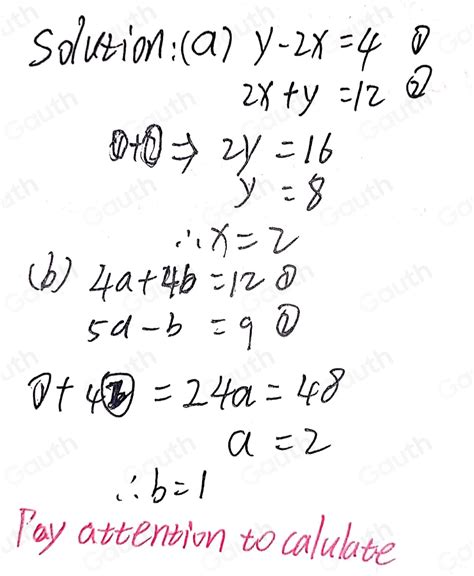 Solution: (a) y-2x=4 ①
2x+y=12 ②
①+②⇒ 2y=16
y=8
∴x=2
(b) 4a+4b=12 ①
5a-b=9 ②
①+4② = 24a=48
a=2
∴b=1
Pay attention to calulate